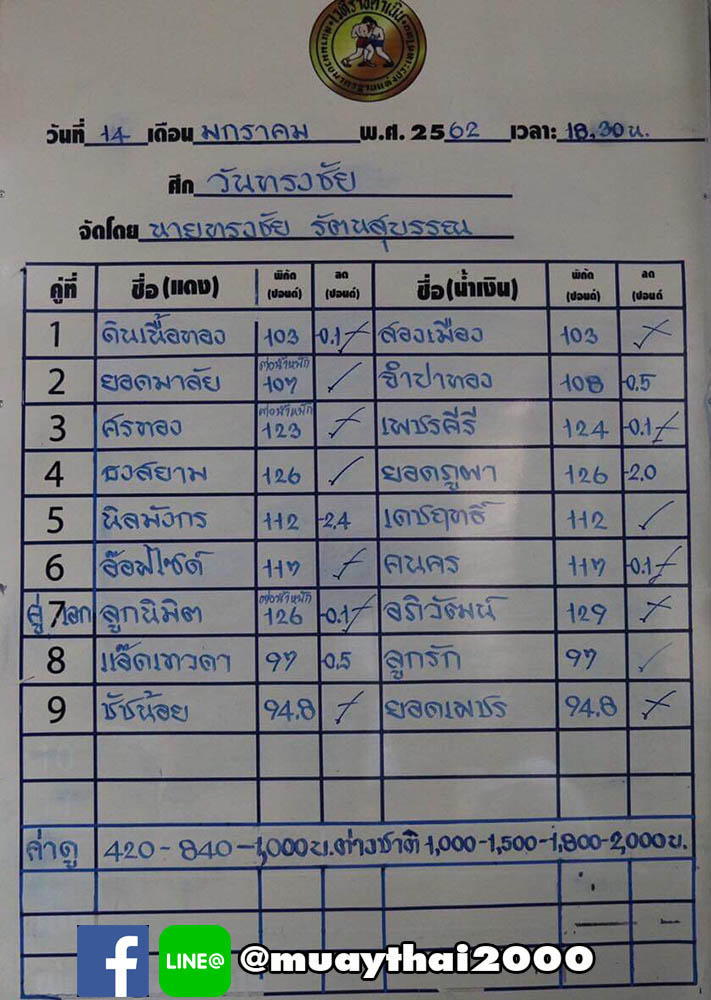 วันที่ 14 เดือน มกราคม พ.ศ. 2562 เวลา: 18.30 น.
ศึก วันทรงชัย
จัดโดย นายทรงชัย รัตนสุบรรณ
คู่ที่ ชื่อ (แดง) พิกัด (ปอนด์) ลด (ปอนด์) ชื่อ (น้ำเงิน) พิกัด (ปอนด์) ลด (ปอนด์
1 ดินเนื้อทอง 103 -0.1 สองเมือง 103
2 ยอดมาลัย ต่อน้ำหนัก 107 ✓ จำปาทอง 108 -0.5
3 ศรทอง ต่อน้ำหนัก 123 เพชรคีรี 124 -0.1
4 ธงสยาม 126 ✓ ยอดภูผา 126 -2.0
5 นิลมังกร 112 -2.4 เดชฤทธิ์ 112 ✓
6 อ๊อฟไซด์ 117 คนคร 117 -0.1
คู่ 7 เอก ลูกนิมิต ต่อน้ำหนัก 126 -0.1 อภิวัฒน์ 129
8 แอ๊ดเทวดา 97 -0.5 ลูกรัก 97 ✓
9 ชัชน้อย 94.8 ยอดเพชร 94.8
ค่าดู 420 - 840 - 1,000 บ. ต่างชาติ 1,000 - 1,500 - 1,800 - 2,000 บ.
f LINE@ @muaythai2000